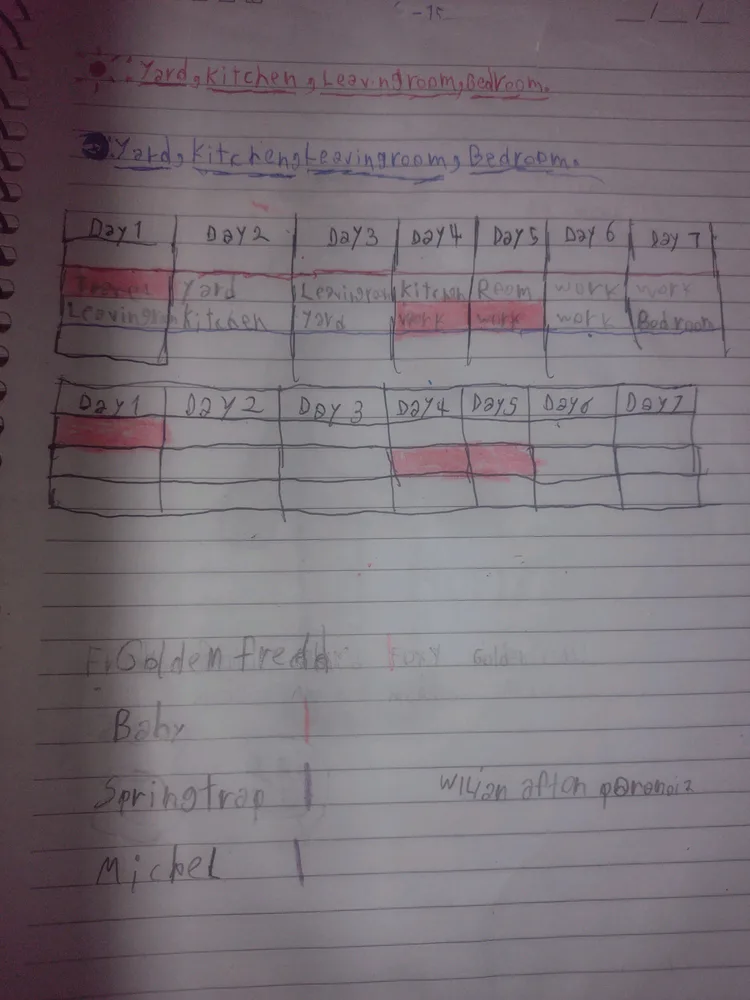 -15 / /
Yard, Kitchen, Leavingroom, Bedroom.
Yard, Kitchen, Leavingroom, Bedroom.
Day 1 Day 2 Day 3 Day 4 Day 5 Day 6 Day 7
Yard Leavingrom Kitchen Room work work
Leavingrom Kitchen Yard work work work Bedroom
Day 1 Day 2 Day 3 Day 4 Day 5 Day 6 Day 7
Golden fredd Foxy Golde
Baby
Springtrap
afton
Michel